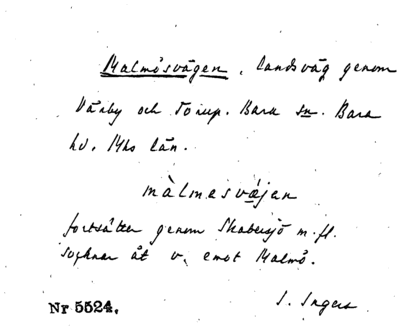 Malmösvägen, landsväg genom
Värby och Torup. Bara sn. Bara
hd. Mhs län.
màlmesvæjen
fortsätter genom Skabersjö m.fl.
socknar åt v. emot Malmö.
I. Ingers
Nr 5524.